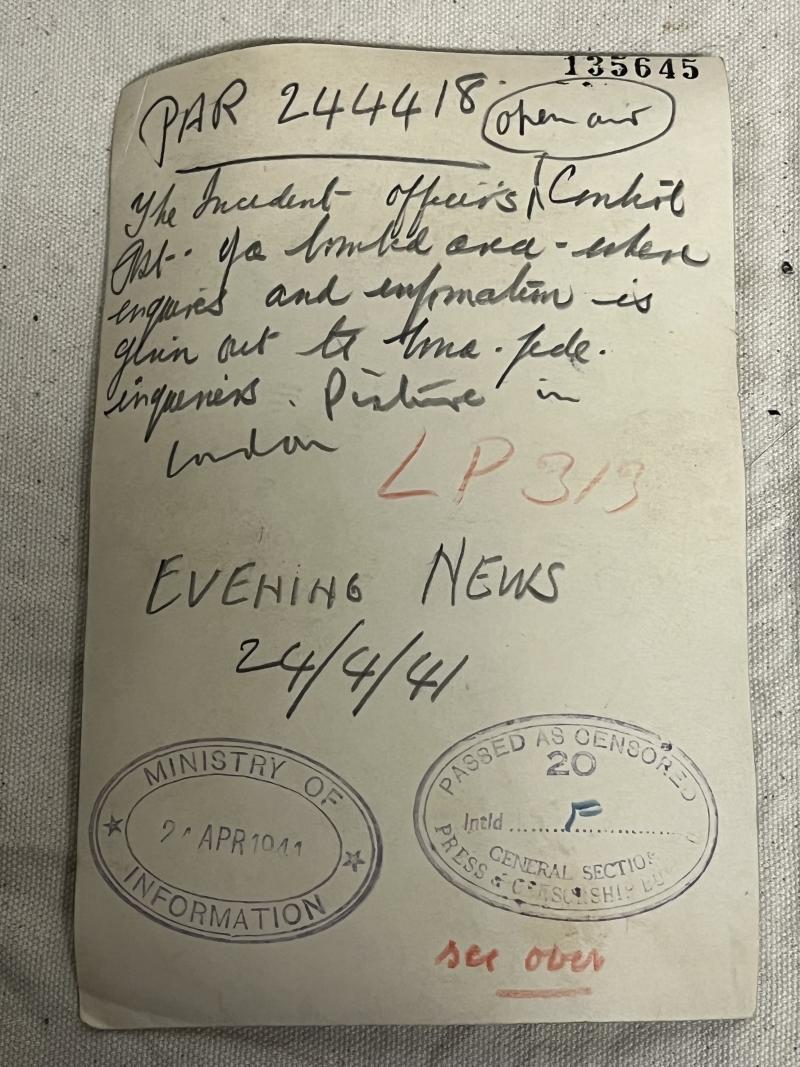 135645
PAR 244418.
open air
The Incident officers Control
Post. of a bombed area - where
enquires and information is
given out to bona-fide.
inqueries. Picture in
London
LP 313
EVENING NEWS
24/4/41
MINISTRY OF
APR 1941
INFORMATION
PASSED AS CENSORED
20
Intld
F
GENERAL SECTION
PRESS & CENSORSHIP
see over